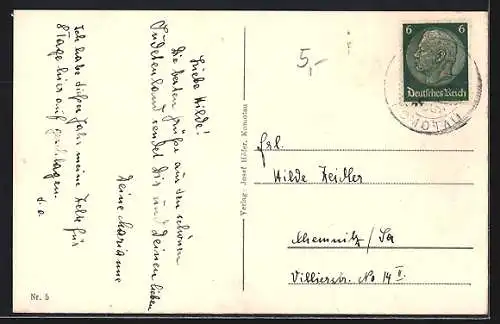 Liebe Hilde!
Die besten Grüße aus dem schönen
Sudetenland sendet Dir und Deinen lieben
Deine Marianne
Ich habe dieses Jahr meine Zelte für
8 Tage hier aufgeschlagen.
d. o.
Nr. 5
Verlag: Josef Höfer, Komotau
5,-
6 6
Deutsches Reich
Frl.
Hilde Zeidler
Chemnitz/Sa
Villierstr. No 14 II